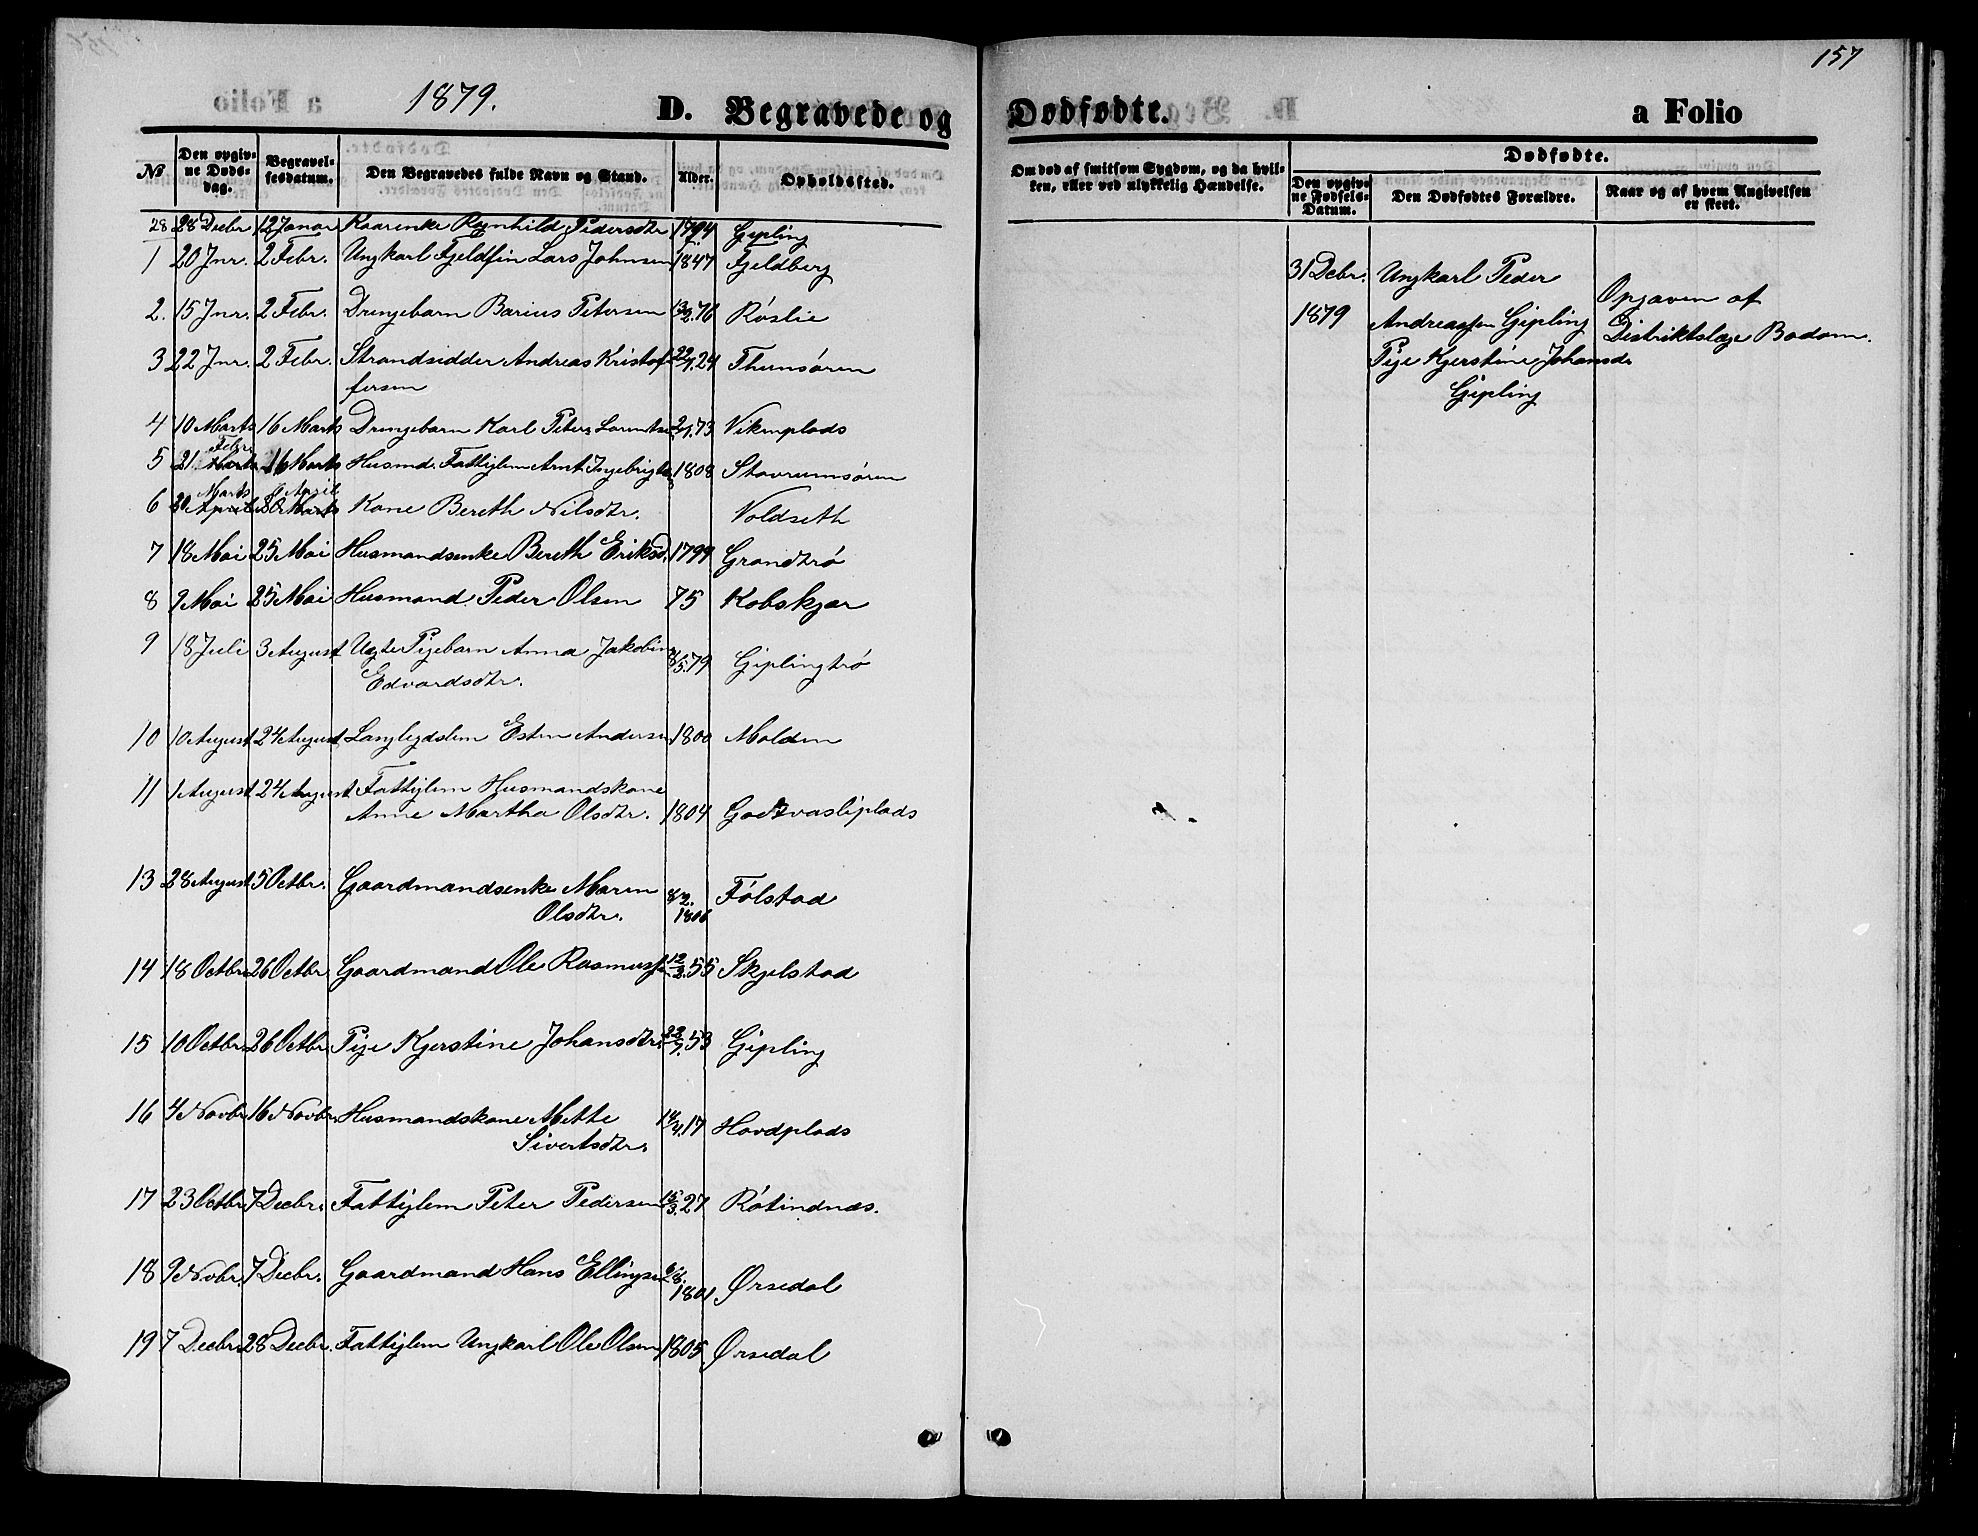 157
1879.
D. Begravede og Dødfødte.
a Folio
№
Den opgivne Døds-dag.
Begravelsesdatum.
Den Begravedes fulde Navn og Stand.
Alder.
Opholdssted.
Om død af smitsom Sygdom, og da hvilken, eller ved ulykkelig Hændelse.
Dødfødte.
Den opgivne Fødsels-Datum.
Den Dødfødtes Forældre.
Naar og af hvem Angivelsen er skeet.
28 28 Decbr 12 Janar Kaarenke Ragnhild Pedersdtr 1794 Gipling
1 20 Jnr. 2 Febr. Ungkarl Fjeldfin Lars Johnsen 1847 Fjeldberg
2. 15 Jnr. 2 Febr. Drengebarn Barius Petersen 13/2.76 Røslie
3 22 Jnr. 2 Febr. Strandsidder Andreas Kristof 22/1.24 Thunsøren
fersen
4 10 Marts 16 Marts Drengebarn Karl Peter Lorents 2/1.73 Vikenplads
Febr
5 21 Marts 16 Marts Husmd. Fattiglem Arnt Ingebrigts 1808 Stavrumsøren
Marts 6 April
6 30 April 30 Marts Kone Bereth Nilsdtr. Voldseth
7 18 Mai 25 Mai Husmandsenke Bereth Eriksd. 1799 Grandtrø
8 9 Mai 25 Mai Husmand Peder Olsen 75 Kobskjær
9 18 Juli 3 August Ugte Pigebarn Anna Jakobine 8/5.79 Giplingtrø
Edvardsdtr.
10 10 August 24 August Langlegdslem Esten Andersen 1800 Molden
11 1 August 24 August Fattiglem Husmandskone
Anne Martha Olsdtr. 1804 Godtvasliplads
13 28 August 5 Octbr. Gaardmandsenke Maren 8/2. Følstad
Olsdtr. 1806
14 18 Octbr. 26 Octbr. Gaardmand Ole Rasmussen 12/2.55 Skjelstad
15 10 Octbr. 26 Octbr. Pige Kjerstine Johansdtr. 22/7.53 Gipling
16 4 Novbr. 16 Novbr. Husmandskone Mette 14/4.17 Hovdplads
Sivertsdtr.
17 23 Octbr 7 Decbr. Fattiglem Peter Pedersen 15/3.27 Røtindnæs.
18 9 Novbr. 7 Decbr. Gaardmand Hans Ellingsen 6/8. Ørsedal
1801
19 7 Decbr. 28 Decbr. Fattiglem Ungkarl Ole Olsen 1805 Ørsedal
31 Debr. Ungkarl Peder
Opgaven af
1879 Andreassen Gipling Distriktslæge Bodom.
Pige Kjerstine Johansd.
Gipling